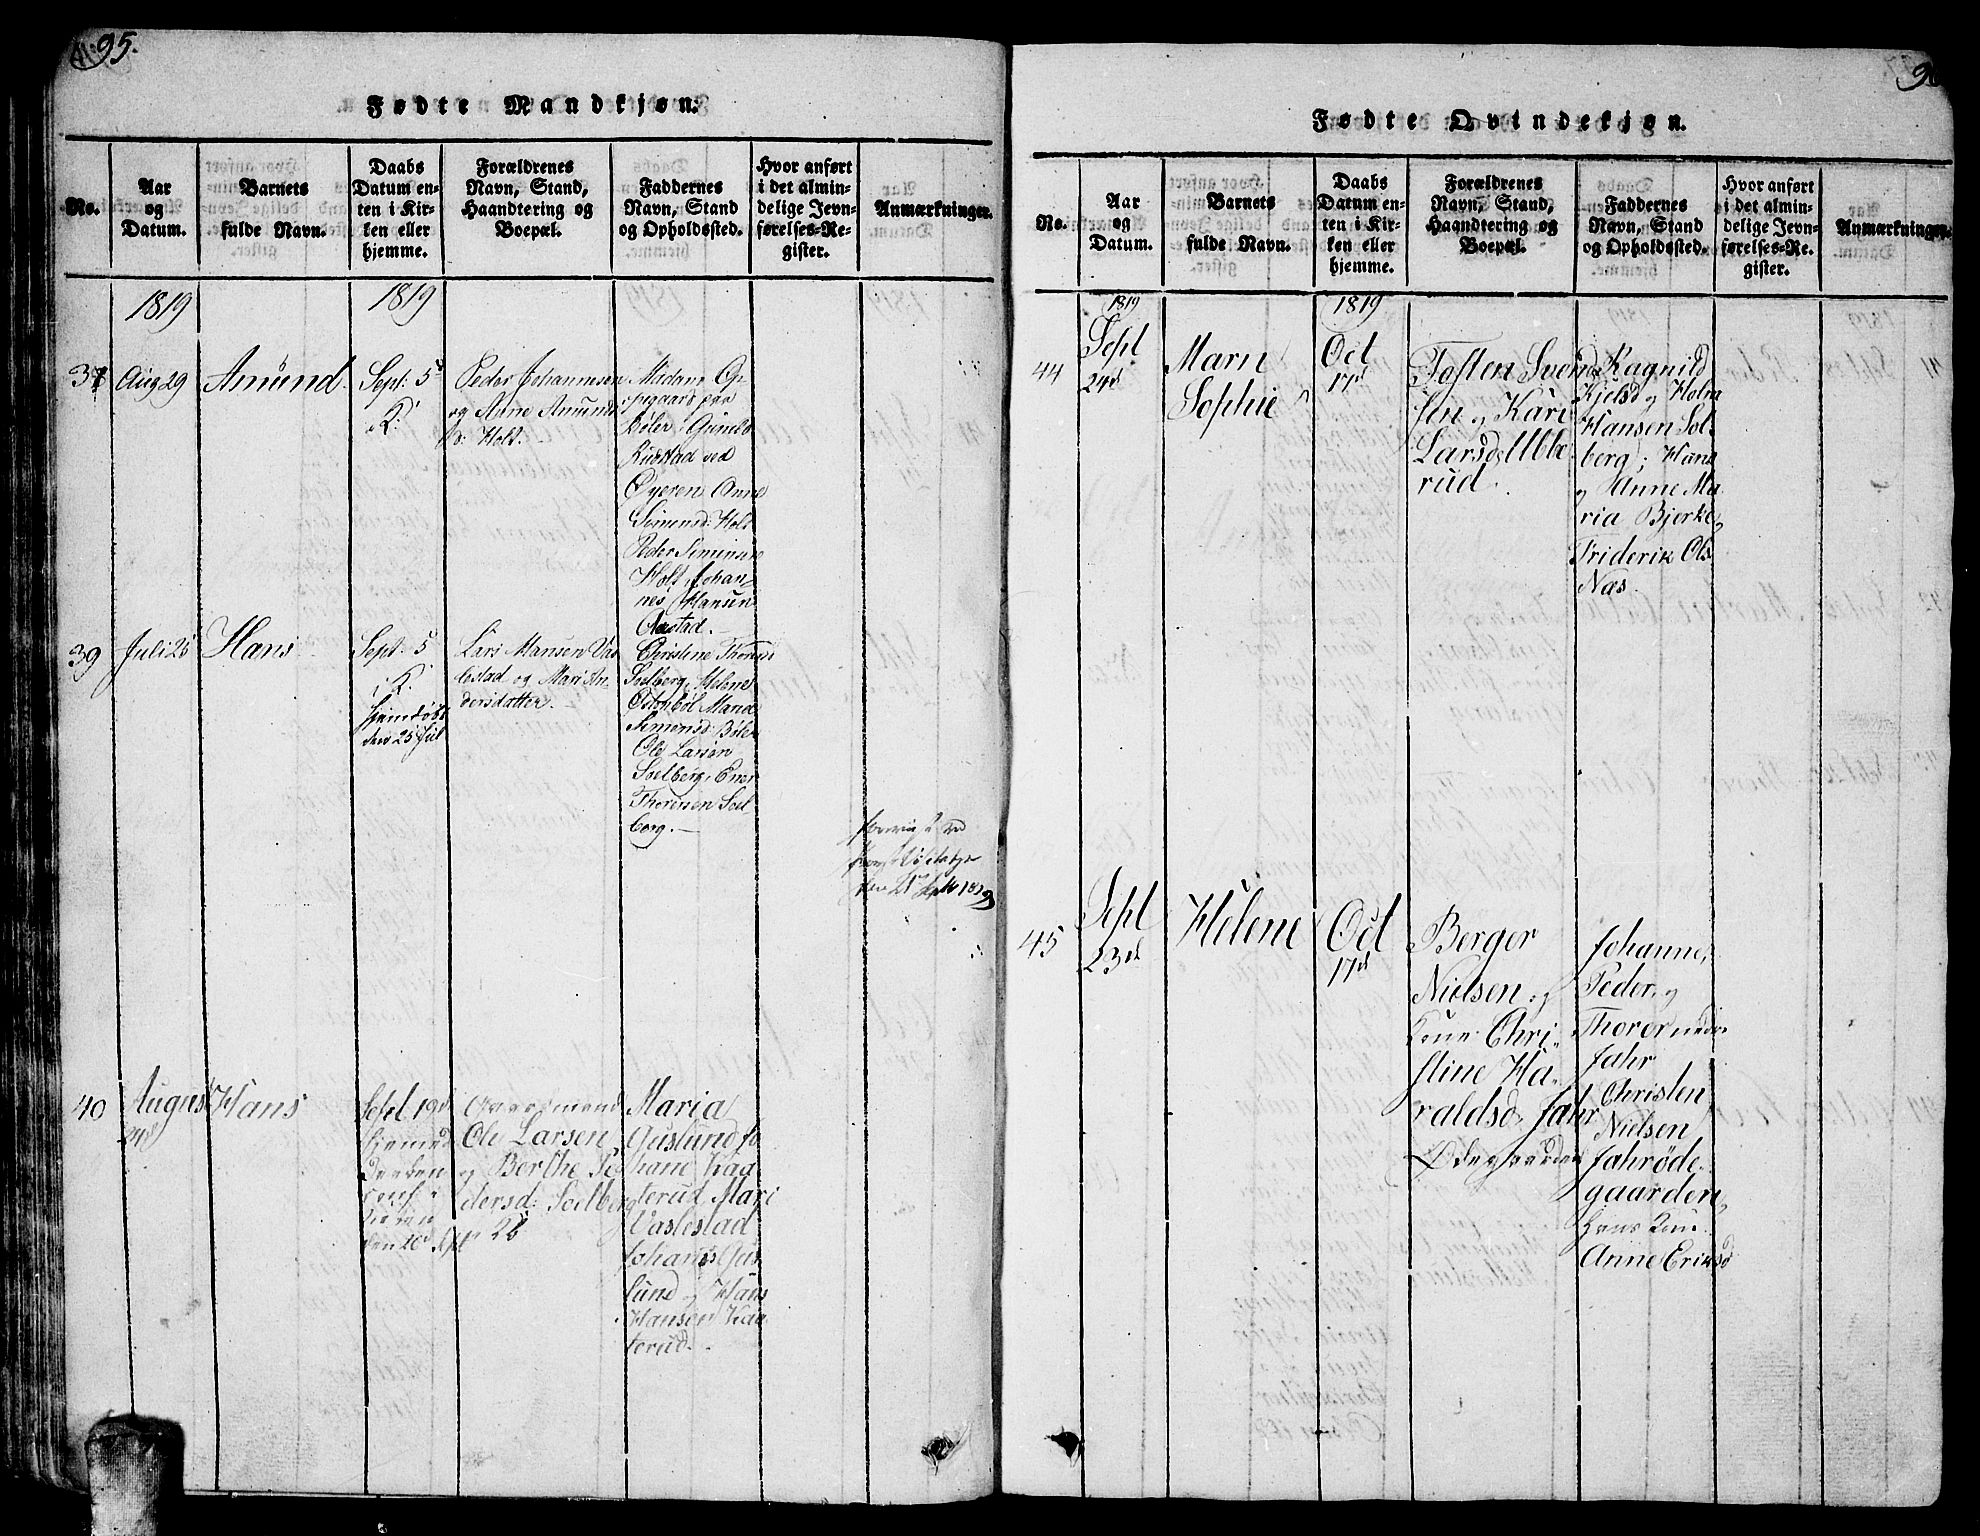 95.
Fødte Mandkjøn.
No.
Aar
og
Datum.
Barnets
fulde Navn.
Daabs
Datum en-
ten i Kir-
ken eller
hjemme.
Forældrenes
Navn, Stand,
Haandtering og
Boepæl.
Faddernes
Navn, Stand
og Opholdssted.
Hvor anført
i det almin-
delige Jevn-
førelses-Re-
gister.
Anmærkninger.
1819
1819
37
Aug 29
Amund
Sept: 5d
K:
Peder Johannesen
og Anne Amunds
d: Holt.
Madam Op-
paa
Bøler, Gunild
Rustad ved
Øyeren Anne
Simensd: Holt
Peder Simensen
Holt, Johan-
nes Hansen
Rustad.
39
Juli 25
Hans
Sept: 5
i K.
hjemdøbt
den 25 Jul
Lars Hansen Vas-
lestad og Mari An-
dersdatter.
Christine Thores
Soelberg, Helene
Marie
Simensd Bøler
Ole Larsen
Soelberg, Ener
Thoresen Soel-
berg.
den 21 Sept 1819
40
August
24d
Hans
Sept 19d
Gaardmand
Ole Larsen
og Berthe Pe-
dersd: Soelberg
26
Maria
Guslund Jo-
hane Kag-
terud Mari
Vaslestad
Johans Gus-
lund og Hans
Hansen Kag-
terud.
Fødte Qvindekjøn.
No.
Aar
og
Datum.
Barnets
fulde Navn.
Daabs
Datum en-
ten i Kir-
ken eller
hjemme.
Forældrenes
Navn, Stand,
Haandtering og
Boepæl.
Faddernes
Navn, Stand
og Opholdssted.
Hvor anført
i det almin-
delige Jevn-
førelses-Re-
gister.
Anmærkninger.
1819
1819
44
Sept
24d
Marn
Sophie
Oct
17d
Tosten Svend
sen og Kari
Larsd: Ulve-
rud.
Ragnild
Kjelsd og Holm
Hansen Sol-
berg; Hans
og Anne Ma-
ria Bjerke,
Friderik Ols
Næs.
45
Sept
23d
Helene
Oct
17d
Berger
Nielsen og
Kone Chri-
stine Ha-
raldsd. Jahr
Ødegaarden
Johanne,
Peder, og
Thorer nedre
Jahr
Christen
Nielsen
Jahrøde-
gaarden,
hans Kone
Anne Eriksd